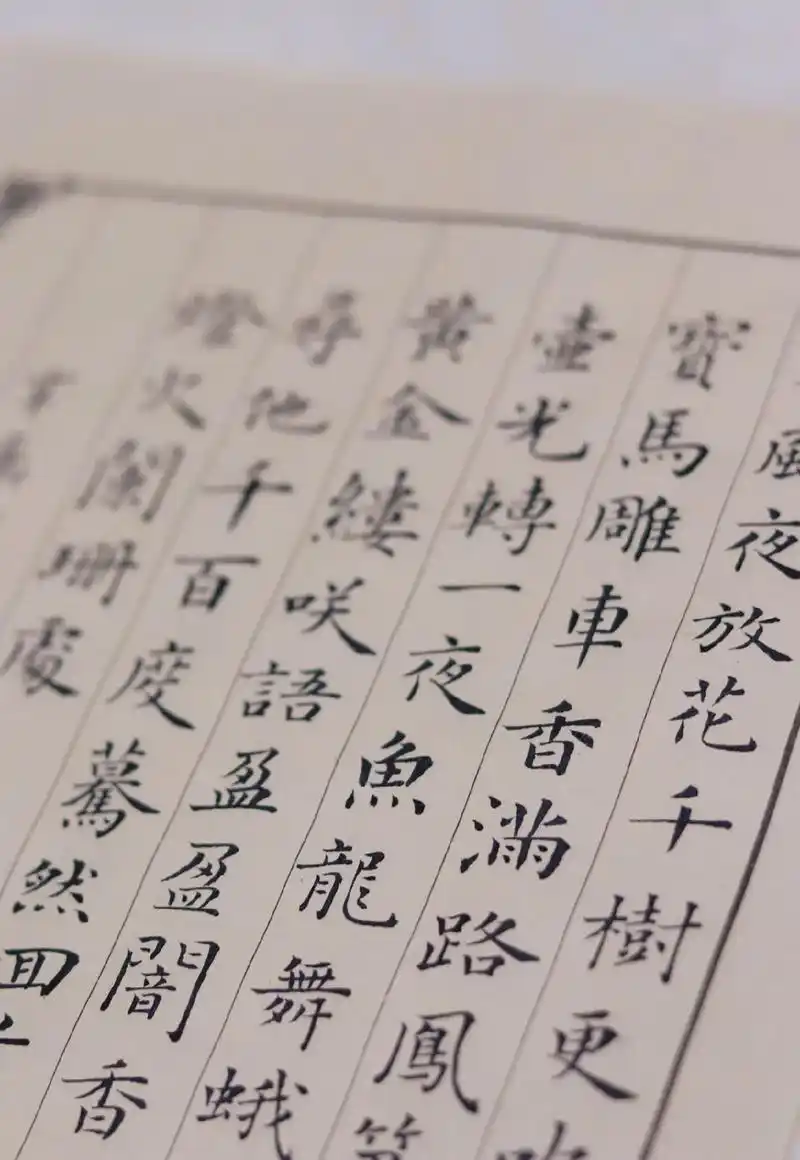 風夜放花千樹更吹
寶馬雕車香滿路鳳
壺光轉一夜魚龍舞蛾
黃金縷咲語盈盈闇香
尋他千百度驀然回
燈火闌珊處